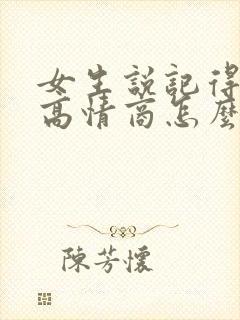 女生説記得
高情商怎麼
陳芳懷